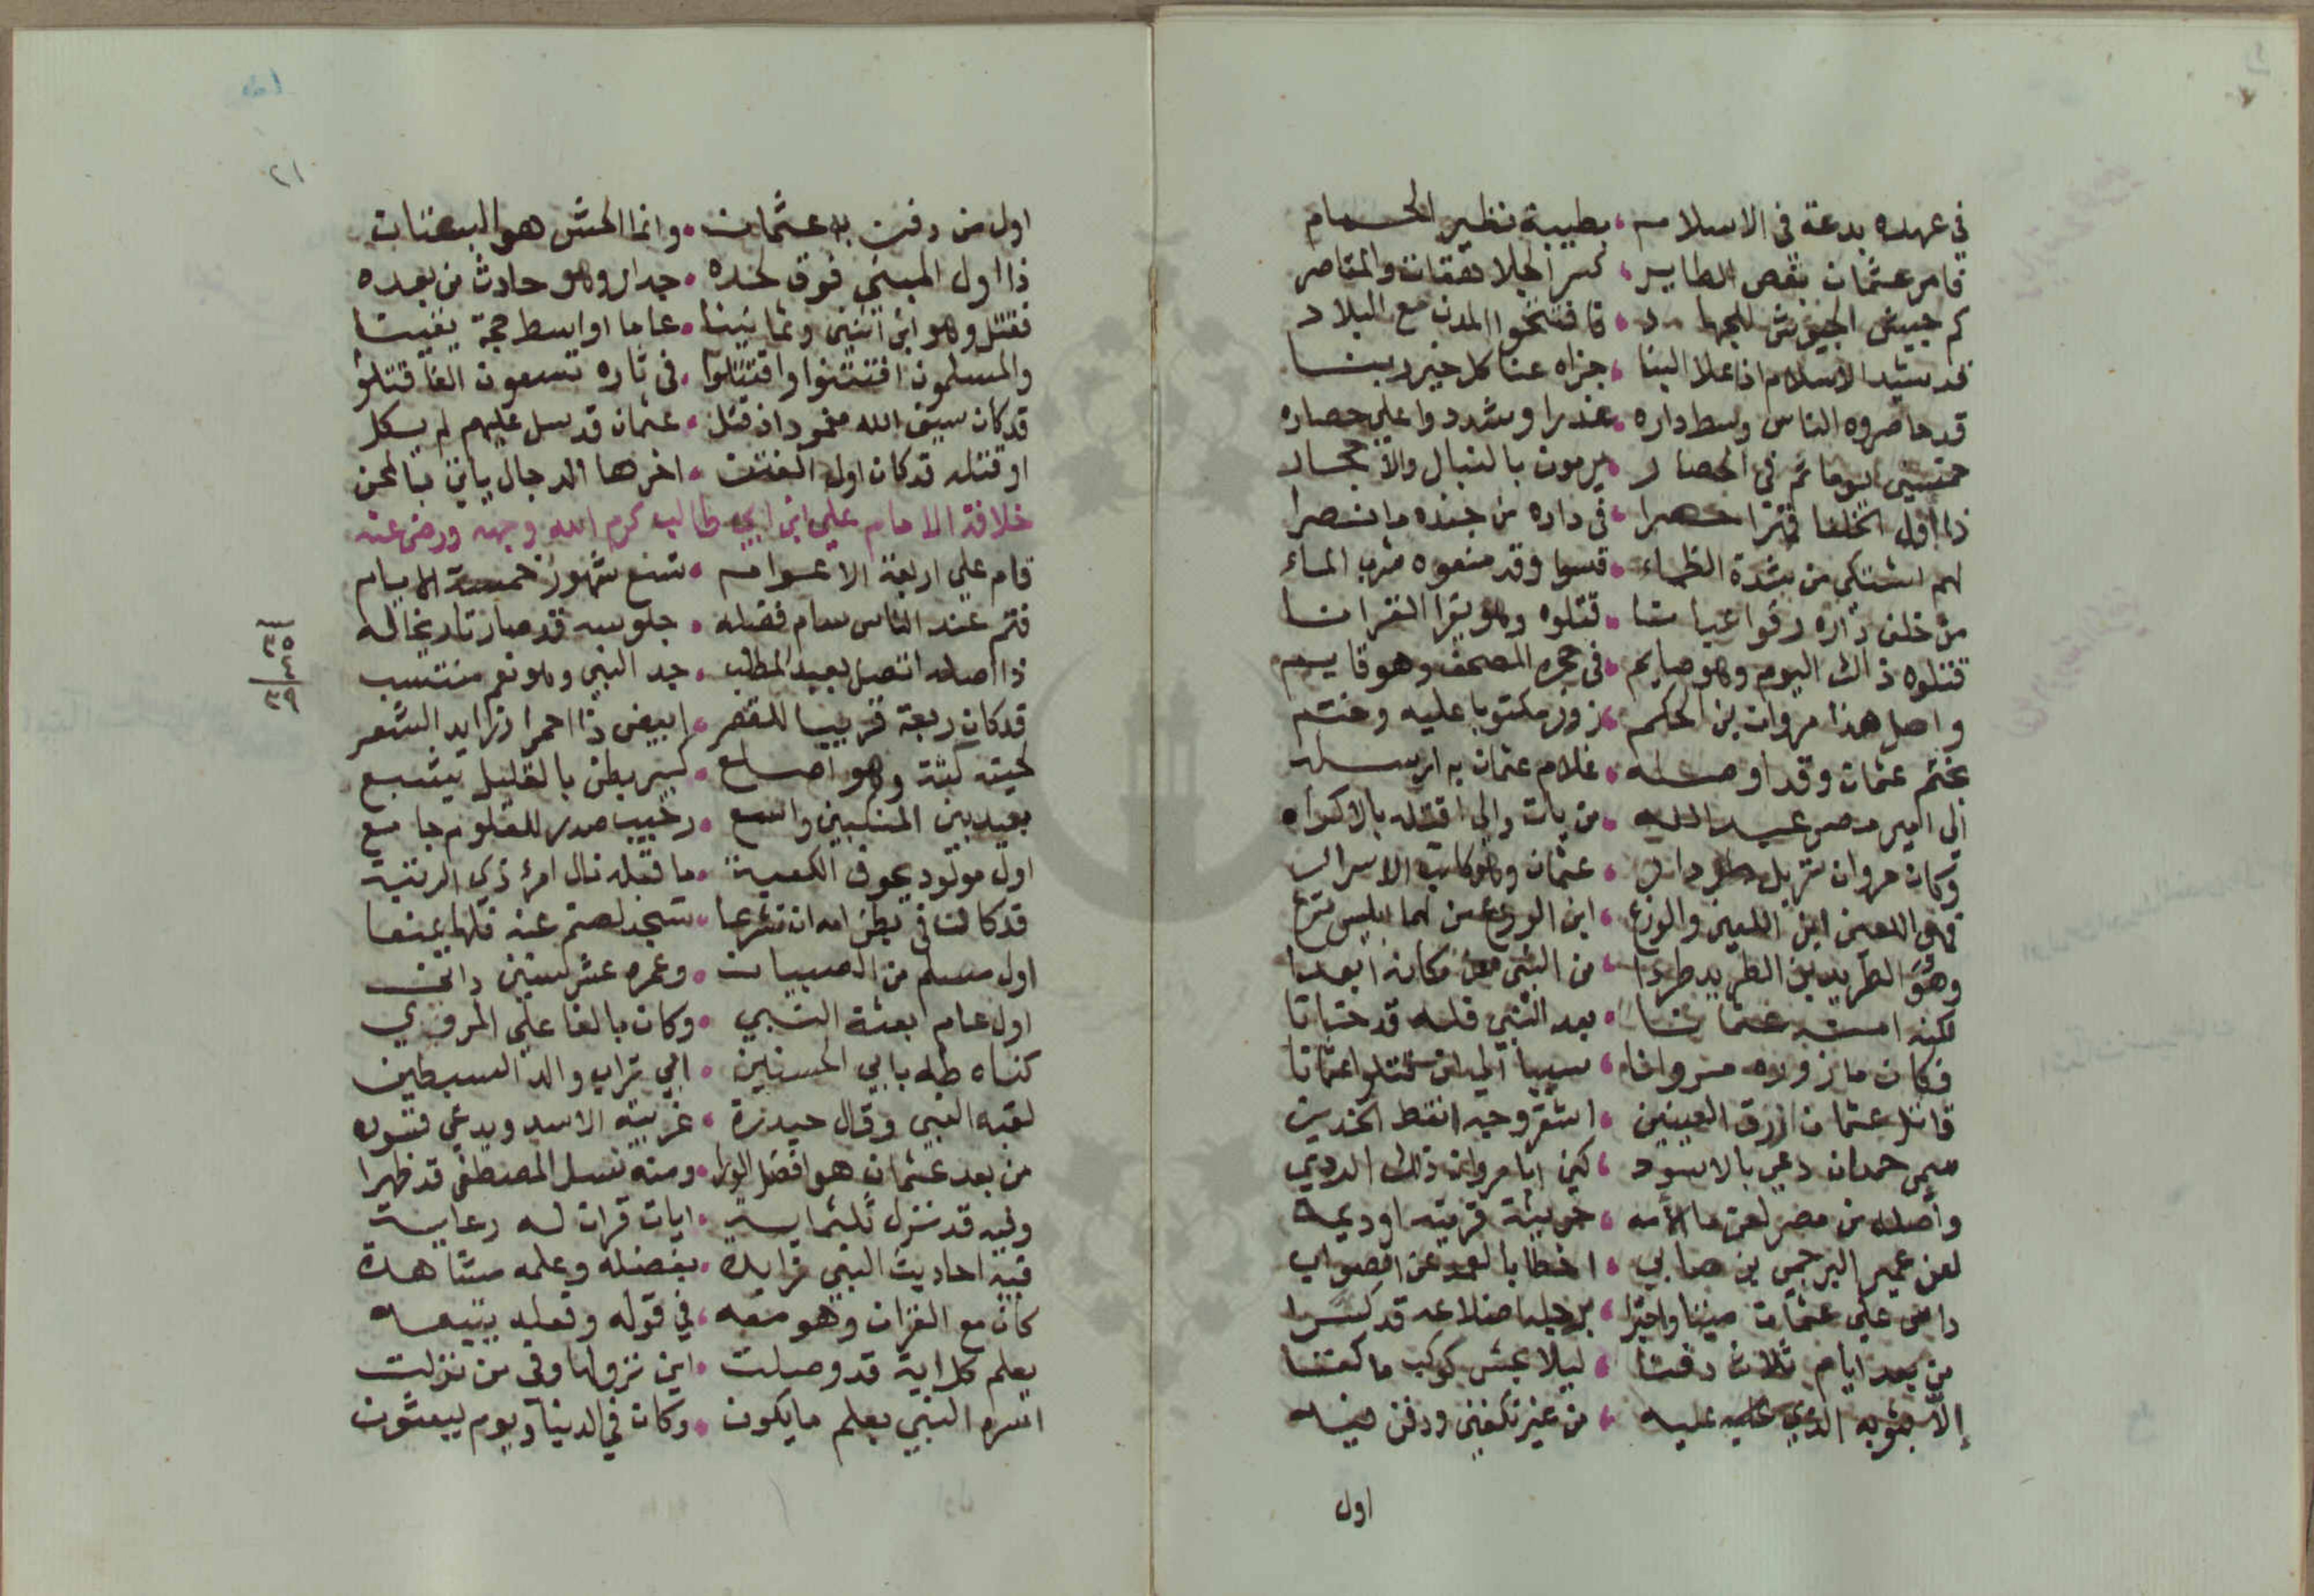 في عهده بدعة في الاسلام ، بطيبة نظير الحمام
فامر عثمان بقص الطاير ، كسر الجلاهقات والمقاصر
كم جيش الجيوش للجهاد ، فافتتحوا المدن مع البلاد
قد شيد الاسلام اذ علا البنا ، جزاه عنا كل خير ربنا
قد حاصروه الناس وسط داره ، غدرا وشددوا على حصاره
خمسين يوما تم في الحصار ، يرمون بالنبال والاحجار
ذا اول الخلفا حصرا ، في داره من جنده ما نصرا
لهم اشتكى من شدة الظماء ، قسوا وقد منعوه شرب الماء
من خلف داره رقوا عيانا ، قتلوه وهو يقرا القرانا
قتلوه ذاك اليوم وهو صايم ، في حجره المصحف وهو قايم
واصل هذا مروان بن الحكم ، زور مكتوبا عليه وختم
بختم عثمان وقد اوصله ، غلام عثمان به ارسله
الى امير مصر عبد الله ، من يات والي اقتله بالاكراه
وكان مروان نزيل دار ، عثمان وهو كاتب الاسرار
فهو اللعين ابن اللعين والوزغ ، ابن الوزغ من لهما ابليس نزغ
وهو الطريد بن الطريد طردا ، من النبي عن مكانه ابعدا
لكنه امنه عثمانا ، بعد النبي فله قد خانا
فكان ما زوره مروانا ، سببا الى ان قتلوا عثمانا
قاتل عثمان ازرق العينين ، اشقر وجه انقط الخدين
سمي حمدان دعي بالاسود ، كمن ايا مروان ذلك الردي
واصله من مصر لعن ما لامه ، خربة قريته او ديمة
لعن عمير البرجمي بن ضابي ، اخطا بالعمد عن الصواب
داس على عثمان ميتا واجترا ، برجله اضلاعه قد كسرا
من بعد ايام ثلاث دفنا ، ليلا بحش كوكب ما كفنا
إلا بثوبه الذي عليه ، من غير تكفين ودفن فيه
اول
٢١
اول من دفن به عثمان ، وانما الحش هو البستان
ذا اول المبني فوق لحده ، جدار وهو حادث من بعده
فقتل وهو ابن اثنين وثمانينا ، عاما اواسط حجة يقينا
والمسلمون افتتنوا واقتتلوا ، في ثاره تسعون الفا قتلوا
قد كان سيف الله مغمود اذ قتل ، عثمان قد سل عليهم لم يكل
او قتله قد كان اول الفتن ، اخرها الدجال ياتي بالمحن
خلافة الامام علي ابن ابي طالب كرم الله وجهه ورضي عنه
قام علي اربعة الاعوام ، تسع شهور خمسة الايام
فتم عند الناس سام فضله ، جلوسه قد صار تاريخا له
٣٥
٣٩
ذا اصله اتصل بعبد المطلب ، جد النبي وهو نعم منتسب
قد كان ربعة قريبا للقصر ، ابيض ذا احمرار زايد الشعر
لحيته كثة وهو اصلع ، كبير بطن بالقليل يشبع
بعيد بين المنكبين واسع ، رحيب صدر للعلوم جامع
اول مولود بجوف الكعبة ، ما قبله نال امرؤ ذي الرتبة
قد كانت في بطن امه ان تشرعا ، تسجد لصنم عنه فلها يمنعا
اول مسلم من الصبيان ، وعمره عشر سنين داني
اول عام بعثة النبي ، وكان بالغا على المروي
كناه طه بابي الحسنين ، ابي تراب والد السبطين
لقبه النبي وقال حيدرة ، غريبة الاسد ويدعى قسوره
من بعد عثمان هو افضل الورا ، ومنه نسل المصطفى قد ظهرا
وفيه قد نزل ثلثماية ، ايات قران له رعاية
فيه احاديث النبي زايدة ، بفضله وعلمه مشاهدة
كان مع القران وهو معه ، في قوله وفعله يتبعه
يعلم كل اية قد وصلت ، اين نزولها وفي من نزلت
اسره النبي يعلم ما يكون ، وكان في الدنيا ويوم يبعثون